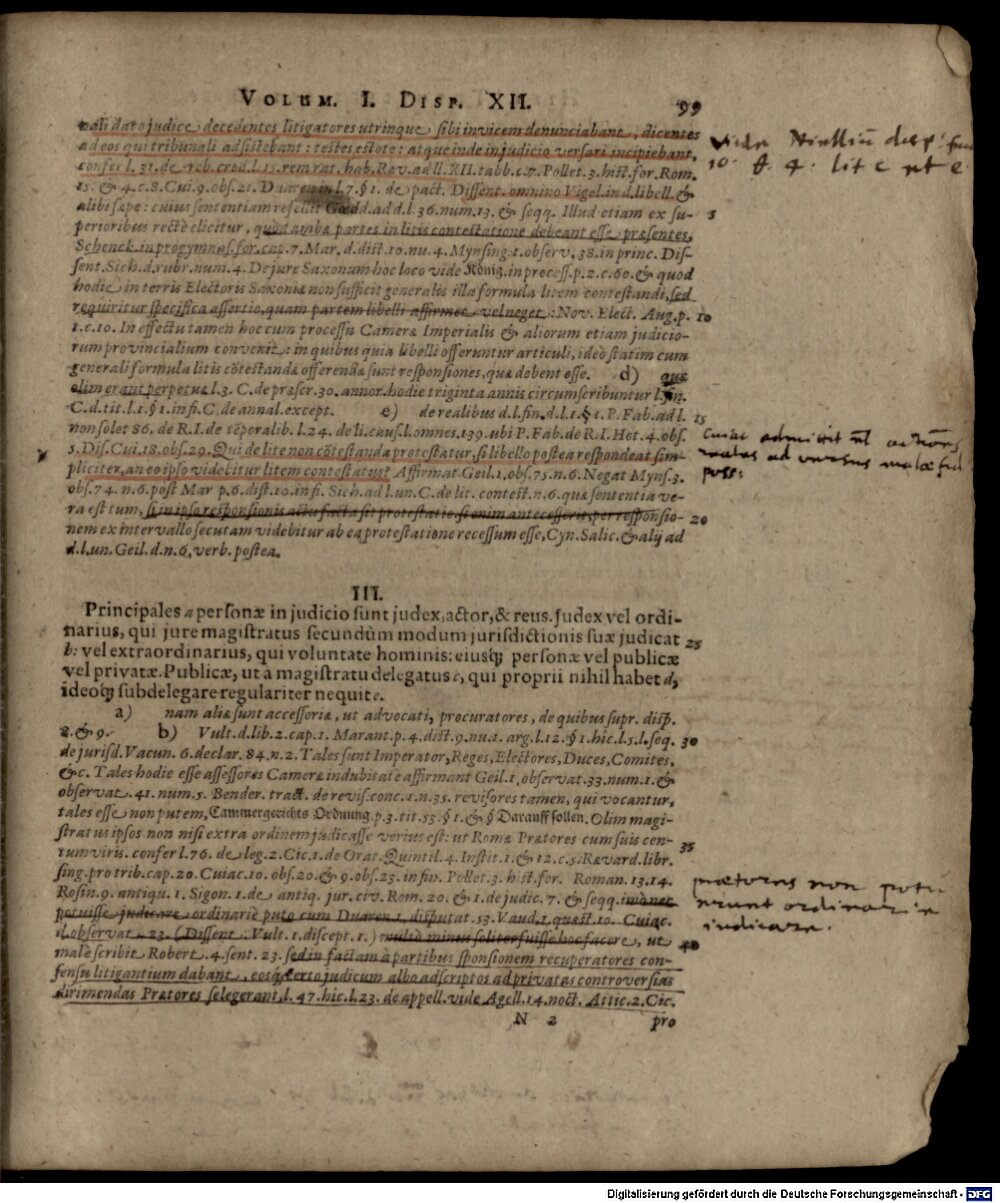 VOLUM. I. DISP. XII. 99
nali dato judice decedentes litigatores utrinque sibi invicem denunciabant, dicentes
ad eos qui tribunali adsistebant: testes estote: atque inde in judicio versari incipiebant,
confer l. 31. de reb. cred. l. 15. rem rat. hab. Rav. ad ll. XII. tabb. c. 7. Pollet. 3. hist. for. Rom.
15. & 4. c. 8. Cui. 9. obs. 21. Duaren in l. 7. § 1. de pact. Dissent. omnino Vigel. in d. libell. &
alibi sæpe: cuius sententiam refellit Gœdd. ad d. l. 36. num. 13. & seqq. Illud etiam ex su- 5
perioribus rectè elicitur, quòd ambæ partes in litis contestatione debeant esse præsentes,
Schenck. in progymnas. for. cap. 7. Mar. d. dist. 10. nu. 4. Mynsing. 1. observ. 38. in princ. Dis-
sent. Sich. d. rubr. num. 4. De jure Saxonum hoc loco vide König. in process. p. 2. c. 60. & quod
hodie in terris Electoris Saxoniæ non sufficit generalis illa formula litem contestandi, sed
requiritur specifica assertio, quam partem libelli affirmet vel neget: Nov. Elect. Aug. p. 10
1. c. 10. In effectu tamen hoc cum processu Cameræ Imperialis & aliorum etiam judicio-
rum provincialium convenit: in quibus quia libelli offeruntur articuli, ideò statim cum
generali formula litis cōtestandæ offerendæ sunt responsiones, quæ debent esse. d) quæ
olim erant perpetuæ l. 3. C. de præscr. 30. annor. hodie triginta annis circumscribuntur l. fin.
C. d. tit. l. 1. § 1. in fi. C. de annal. except. e) de realibus d. l. fin. d. l. 1. § 1. P. Fab. ad l. 15
non solet 86. de R. I. de tēporalib. l. 24. de li. caus. l. omnes. 139. ubi P. Fab. de R. I. Hot. 4. obs.
5. Dis. Cui. 18. obs. 29. Qui de lite non cōtestanda protestatur, si libello postea respondeat sim-
pliciter, an eo ipso videbitur litem contestatus? Affirmat Geil. 1. obs. 75. n. 6. Negat Myns. 3.
obs. 74. n. 6. post Mar p. 6. dist. 10. in fi. Sich. ad l. un. C. de lit. contest. n. 6. quæ sententia ve-
ra est tum, si in ipso responsionis actu facta sit protestatio, si enim antecesserit, per responsio- 20
nem ex intervallo secutam videbitur ab ea protestatione recessum esse, Cyn. Salic. & alij ad
d. l. un. Geil. d. n. 6. verb. postea.
III.
Principales a personæ in judicio sunt judex, actor, & reus. Judex vel ordi-
narius, qui jure magistratus secundùm modum jurisdictionis suæ judicat 25
b: vel extraordinarius, qui voluntate hominis: eiusq́; personæ vel publicæ
vel privatæ. Publicæ, ut à magistratu delegatus c, qui proprii nihil habet d,
ideoq́; subdelegare regulariter nequit e.
a) nam aliæ sunt accessoriæ, ut advocati, procuratores, de quibus supr. disp.
8. & 9. b) Vult. d. lib. 2. cap. 1. Marant. p. 4. dist. 9. nu. 1. arg. l. 12. § 1. hic. l. 5. l. seq. 30
de jurisd. Vacun. 6. declar. 84. n. 2. Tales sunt Imperator, Reges, Electores, Duces, Comites,
&c. Tales hodie esse assessores Cameræ indubitatè affirmant Geil. 1. observat. 33. num. 1. &
observat. 41. num. 5. Bender. tract. de revis. conc. 1. n. 35. revisores tamen, qui vocantur,
tales esse non putem, Cammergerichts Ordnung. p. 3. tit. 53. § 1. & § Darauff sollen. Olim magi-
stratus ipsos non nisi extra ordinem judicasse verius est: ut Romæ Prætores cum suis cen- 35
tumviris. confer l. 76. de leg. 2. Cic. 1. de Orat. Quintil. 4. Instit. 1. & 12. c. 5. Rævard. libr.
sing. pro trib. cap. 20. Cuiac. 10. obs. 20. & 9. obs. 23. in fin. Pollet. 3. hist. for. Roman. 13. 14.
Rosin. 9. antiqu. 1. Sigon. 1. de antiq. jur. civ. Rom. 20. & 1. de judic. 7. & seqq. imò nec
potuisse judicare ordinariè puto cum Duaren 1. disputat. 53. Vaud. 1. quæst. 10. Cuiac.
d. observat. 23. (Dissent. Vult. 1. discept. 1.) multò minus solitos fuisse hoc facere, ut 40
malè scribit Robert. 4. sent. 23. sed in factam à partibus sponsionem recuperatores con-
sensu litigantium dabant, eosq́; certo judicum albo adscriptos ad privatas controversias
dirimendas Prætores selegerant, l. 47. hic. l. 23. de appell. vide Agell. 14. noct. Attic. 2. Cic.
N 2 pro
Vide disp.
10. 4. lit c et e
Cuiac admittit
ad versus malæ fid
poss:
prætores non potu
erunt ordinarie
iudicare.
Digitalisierung gefördert durch die Deutsche Forschungsgemeinschaft - DFG